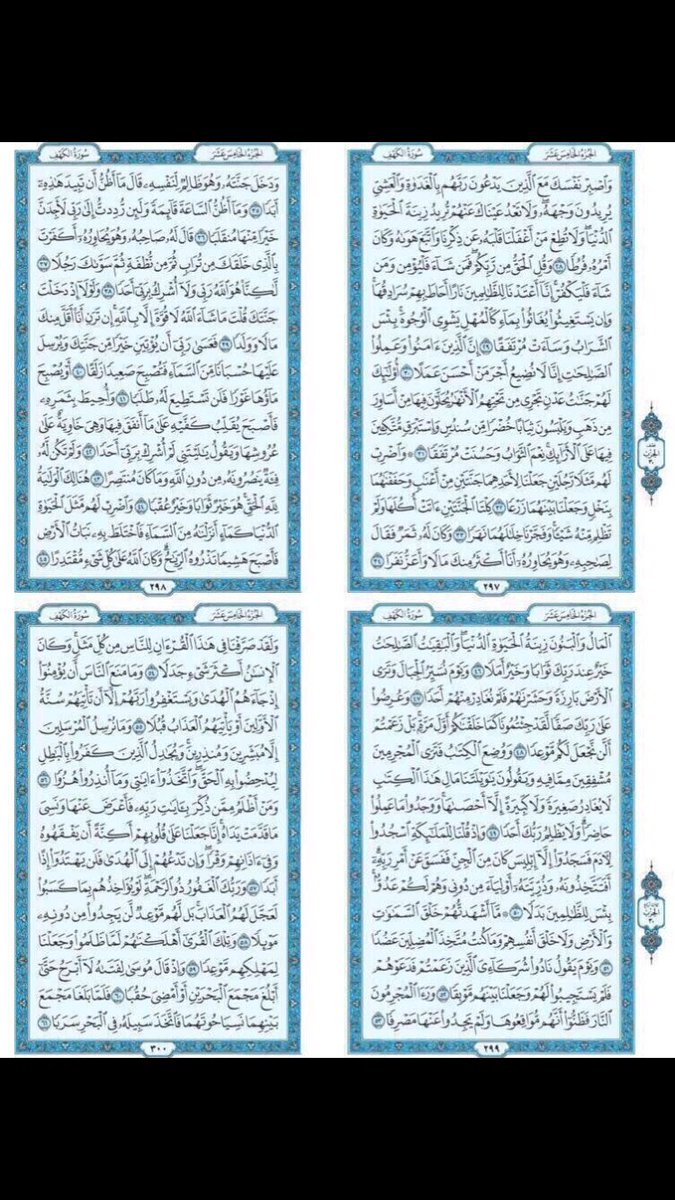 الجزء الخامس عشر سورة الكهف
وَٱصۡبِرۡ نَفۡسَكَ مَعَ ٱلَّذِينَ يَدۡعُونَ رَبَّهُم بِٱلۡغَدَوٰةِ وَٱلۡعَشِيِّ
يُرِيدُونَ وَجۡهَهُۥۖ وَلَا تَعۡدُ عَيۡنَاكَ عَنۡهُمۡ تُرِيدُ زِينَةَ ٱلۡحَيَوٰةِ
ٱلدُّنۡيَاۖ وَلَا تُطِعۡ مَنۡ أَغۡفَلۡنَا قَلۡبَهُۥ عَن ذِكۡرِنَا وَٱتَّبَعَ هَوَىٰهُ وَكَانَ
أَمۡرُهُۥ فُرُطٗا ٢٨ وَقُلِ ٱلۡحَقُّ مِن رَّبِّكُمۡۖ فَمَن شَآءَ فَلۡيُؤۡمِن وَمَن
شَآءَ فَلۡيَكۡفُرۡۚ إِنَّآ أَعۡتَدۡنَا لِلظَّٰلِمِينَ نَارًا أَحَاطَ بِهِمۡ سُرَادِقُهَاۚ
وَإِن يَسۡتَغِيثُواْ يُغَاثُواْ بِمَآءٖ كَٱلۡمُهۡلِ يَشۡوِي ٱلۡوُجُوهَۚ بِئۡسَ
ٱلشَّرَابُ وَسَآءَتۡ مُرۡتَفَقًا ٢٩ إِنَّ ٱلَّذِينَ ءَامَنُواْ وَعَمِلُواْ
ٱلصَّٰلِحَٰتِ إِنَّا لَا نُضِيعُ أَجۡرَ مَنۡ أَحۡسَنَ عَمَلًا ٣٠ أُوْلَٰٓئِكَ
لَهُمۡ جَنَّٰتُ عَدۡنٖ تَجۡرِي مِن تَحۡتِهِمُ ٱلۡأَنۡهَٰرُ يُحَلَّوۡنَ فِيهَا مِنۡ أَسَاوِرَ
مِن ذَهَبٖ وَيَلۡبَسُونَ ثِيَابًا خُضۡرٗا مِّن سُندُسٖ وَإِسۡتَبۡرَقٖ مُّتَّكِـِٔينَ
فِيهَا عَلَى ٱلۡأَرَآئِكِۚ نِعۡمَ ٱلثَّوَابُ وَحَسُنَتۡ مُرۡتَفَقٗا ٣١ ۞ وَٱضۡرِبۡ
لَهُم مَّثَلٗا رَّجُلَيۡنِ جَعَلۡنَا لِأَحَدِهِمَا جَنَّتَيۡنِ مِنۡ أَعۡنَٰبٖ وَحَفَفۡنَٰهُمَا
بِنَخۡلٖ وَجَعَلۡنَا بَيۡنَهُمَا زَرۡعٗا ٣٢ كِلۡتَا ٱلۡجَنَّتَيۡنِ ءَاتَتۡ أُكُلَهَا وَلَمۡ
تَظۡلِم مِّنۡهُ شَيۡـٔٗاۚ وَفَجَّرۡنَا خِلَٰلَهُمَا نَهَرٗا ٣٣ وَكَانَ لَهُۥ ثَمَرٞ فَقَالَ
لِصَٰحِبِهِۦ وَهُوَ يُحَاوِرُهُۥٓ أَنَا۠ أَكۡثَرُ مِنكَ مَالٗا وَأَعَزُّ نَفَرٗا ٣٤
٢٩٧
الجزء الخامس عشر سورة الكهف
وَدَخَلَ جَنَّتَهُۥ وَهُوَ ظَالِمٞ لِّنَفۡسِهِۦ قَالَ مَآ أَظُنُّ أَن تَبِيدَ هَٰذِهِۦٓ
أَبَدٗا ٣٥ وَمَآ أَظُنُّ ٱلسَّاعَةَ قَآئِمَةٗ وَلَئِن رُّدِدتُّ إِلَىٰ رَبِّي لَأَجِدَنَّ
خَيۡرٗا مِّنۡهَا مُنقَلَبٗا ٣٦ قَالَ لَهُۥ صَاحِبُهُۥ وَهُوَ يُحَاوِرُهُۥٓ أَكَفَرۡتَ
بِٱلَّذِي خَلَقَكَ مِن تُرَابٖ ثُمَّ مِن نُّطۡفَةٖ ثُمَّ سَوَّىٰكَ رَجُلٗا ٣٧
لَّٰكِنَّا۠ هُوَ ٱللَّهُ رَبِّي وَلَآ أُشۡرِكُ بِرَبِّيٓ أَحَدٗا ٣٨ وَلَوۡلَآ إِذۡ دَخَلۡتَ
جَنَّتَكَ قُلۡتَ مَا شَآءَ ٱللَّهُ لَا قُوَّةَ إِلَّا بِٱللَّهِۚ إِن تَرَنِ أَنَا۠ أَقَلَّ مِنكَ
مَالٗا وَوَلَدٗا ٣٩ فَعَسَىٰ رَبِّيٓ أَن يُؤۡتِيَنِ خَيۡرٗا مِّن جَنَّتِكَ وَيُرۡسِلَ
عَلَيۡهَا حُسۡبَانٗا مِّنَ ٱلسَّمَآءِ فَتُصۡبِحَ صَعِيدٗا زَلَقًا ٤٠ أَوۡ يُصۡبِحَ
مَآؤُهَا غَوۡرٗا فَلَن تَسۡتَطِيعَ لَهُۥ طَلَبٗا ٤١ وَأُحِيطَ بِثَمَرِهِۦ
فَأَصۡبَحَ يُقَلِّبُ كَفَّيۡهِ عَلَىٰ مَآ أَنفَقَ فِيهَا وَهِيَ خَاوِيَةٌ عَلَىٰ
عُرُوشِهَا وَيَقُولُ يَٰلَيۡتَنِي لَمۡ أُشۡرِكۡ بِرَبِّيٓ أَحَدٗا ٤٢ وَلَمۡ تَكُن لَّهُۥ
فِئَةٞ يَنصُرُونَهُۥ مِن دُونِ ٱللَّهِ وَمَا كَانَ مُنتَصِرًا ٤٣ هُنَالِكَ ٱلۡوَلَٰيَةُ
لِلَّهِ ٱلۡحَقِّۚ هُوَ خَيۡرٞ ثَوَابٗا وَخَيۡرٌ عُقۡبٗا ٤٤ وَٱضۡرِبۡ لَهُم مَّثَلَ ٱلۡحَيَوٰةِ
ٱلدُّنۡيَا كَمَآءٍ أَنزَلۡنَٰهُ مِنَ ٱلسَّمَآءِ فَٱخۡتَلَطَ بِهِۦ نَبَاتُ ٱلۡأَرۡضِ
فَأَصۡبَحَ هَشِيمٗا تَذۡرُوهُ ٱلرِّيَٰحُۗ وَكَانَ ٱللَّهُ عَلَىٰ كُلِّ شَيۡءٖ مُّقۡتَدِرًا ٤٥
٢٩٨
الجزء الخامس عشر سورة الكهف
ٱلۡمَالُ وَٱلۡبَنُونَ زِينَةُ ٱلۡحَيَوٰةِ ٱلدُّنۡيَاۖ وَٱلۡبَٰقِيَٰتُ ٱلصَّٰلِحَٰتُ
خَيۡرٌ عِندَ رَبِّكَ ثَوَابٗا وَخَيۡرٌ أَمَلٗا ٤٦ وَيَوۡمَ نُسَيِّرُ ٱلۡجِبَالَ وَتَرَى
ٱلۡأَرۡضَ بَارِزَةٗ وَحَشَرۡنَٰهُمۡ فَلَمۡ نُغَادِرۡ مِنۡهُمۡ أَحَدٗا ٤٧ وَعُرِضُواْ
عَلَىٰ رَبِّكَ صَفّٗا لَّقَدۡ جِئۡتُمُونَا كَمَا خَلَقۡنَٰكُمۡ أَوَّلَ مَرَّةِۭۚ بَلۡ زَعَمۡتُمۡ
أَلَّن نَّجۡعَلَ لَكُم مَّوۡعِدٗا ٤٨ وَوُضِعَ ٱلۡكِتَٰبُ فَتَرَى ٱلۡمُجۡرِمِينَ
مُشۡفِقِينَ مِمَّا فِيهِ وَيَقُولُونَ يَٰوَيۡلَتَنَا مَالِ هَٰذَا ٱلۡكِتَٰبِ
لَا يُغَادِرُ صَغِيرَةٗ وَلَا كَبِيرَةً إِلَّآ أَحۡصَىٰهَاۚ وَوَجَدُواْ مَا عَمِلُواْ
حَاضِرٗاۗ وَلَا يَظۡلِمُ رَبُّكَ أَحَدٗا ٤٩ وَإِذۡ قُلۡنَا لِلۡمَلَٰٓئِكَةِ ٱسۡجُدُواْ
لِأٓدَمَ فَسَجَدُوٓاْ إِلَّآ إِبۡلِيسَ كَانَ مِنَ ٱلۡجِنِّ فَفَسَقَ عَنۡ أَمۡرِ رَبِّهِۦٓۗ
أَفَتَتَّخِذُونَهُۥ وَذُرِّيَّتَهُۥٓ أَوۡلِيَآءَ مِن دُونِي وَهُمۡ لَكُمۡ عَدُوُّۢۚ
بِئۡسَ لِلظَّٰلِمِينَ بَدَلٗا ٥٠ ۞ مَّآ أَشۡهَدتُّهُمۡ خَلۡقَ ٱلسَّمَٰوَٰتِ
وَٱلۡأَرۡضِ وَلَا خَلۡقَ أَنفُسِهِمۡ وَمَا كُنتُ مُتَّخِذَ ٱلۡمُضِلِّينَ عَضُدٗا
٥١ وَيَوۡمَ يَقُولُ نَادُواْ شُرَكَآءِيَ ٱلَّذِينَ زَعَمۡتُمۡ فَدَعَوۡهُمۡ
فَلَمۡ يَسۡتَجِيبُواْ لَهُمۡ وَجَعَلۡنَا بَيۡنَهُم مَّوۡبِقٗا ٥٢ وَرَءَا ٱلۡمُجۡرِمُونَ
ٱلنَّارَ فَظَنُّوٓاْ أَنَّهُم مُّوَاقِعُوهَا وَلَمۡ يَجِدُواْ عَنۡهَا مَصۡرِفٗا ٥٣
٢٩٩
الجزء الخامس عشر سورة الكهف
وَلَقَدۡ صَرَّفۡنَا فِي هَٰذَا ٱلۡقُرۡءَانِ لِلنَّاسِ مِن كُلِّ مَثَلٖۚ وَكَانَ
ٱلۡإِنسَٰنُ أَكۡثَرَ شَيۡءٖ جَدَلٗا ٥٤ وَمَا مَنَعَ ٱلنَّاسَ أَن يُؤۡمِنُوٓاْ
إِذۡ جَآءَهُمُ ٱلۡهُدَىٰ وَيَسۡتَغۡفِرُواْ رَبَّهُمۡ إِلَّآ أَن تَأۡتِيَهُمۡ سُنَّةُ
ٱلۡأَوَّلِينَ أَوۡ يَأۡتِيَهُمُ ٱلۡعَذَابُ قُبُلٗا ٥٥ وَمَا نُرۡسِلُ ٱلۡمُرۡسَلِينَ
إِلَّا مُبَشِّرِينَ وَمُنذِرِينَۚ وَيُجَٰدِلُ ٱلَّذِينَ كَفَرُواْ بِٱلۡبَٰطِلِ
لِيُدۡحِضُواْ بِهِ ٱلۡحَقَّۖ وَٱتَّخَذُوٓاْ ءَايَٰتِي وَمَآ أُنذِرُواْ هُزُوٗا ٥٦
وَمَنۡ أَظۡلَمُ مِمَّن ذُكِّرَ بِـَٔايَٰتِ رَبِّهِۦ فَأَعۡرَضَ عَنۡهَا وَنَسِيَ
مَا قَدَّمَتۡ يَدَاهُۚ إِنَّا جَعَلۡنَا عَلَىٰ قُلُوبِهِمۡ أَكِنَّةً أَن يَفۡقَهُوهُ
وَفِيٓ ءَاذَانِهِمۡ وَقۡرٗاۖ وَإِن تَدۡعُهُمۡ إِلَى ٱلۡهُدَىٰ فَلَن يَهۡتَدُوٓاْ إِذًا
أَبَدٗا ٥٧ وَرَبُّكَ ٱلۡغَفُورُ ذُو ٱلرَّحۡمَةِۖ لَوۡ يُؤَاخِذُهُم بِمَا كَسَبُواْ
لَعَجَّلَ لَهُمُ ٱلۡعَذَابَۚ بَل لَّهُم مَّوۡعِدٞ لَّن يَجِدُواْ مِن دُونِهِۦ
مَوۡئِلٗا ٥٨ وَتِلۡكَ ٱلۡقُرَىٰٓ أَهۡلَكۡنَٰهُمۡ لَمَّا ظَلَمُواْ وَجَعَلۡنَا
لِمَهۡلِكِهِم مَّوۡعِدٗا ٥٩ وَإِذۡ قَالَ مُوسَىٰ لِفَتَىٰهُ لَآ أَبۡرَحُ حَتَّىٰٓ
أَبۡلُغَ مَجۡمَعَ ٱلۡبَحۡرَيۡنِ أَوۡ أَمۡضِيَ حُقُبٗا ٦٠ فَلَمَّا بَلَغَا مَجۡمَعَ
بَيۡنِهِمَا نَسِيَا حُوتَهُمَا فَٱتَّخَذَ سَبِيلَهُۥ فِي ٱلۡبَحۡرِ سَرَبٗا ٦١
٣٠٠